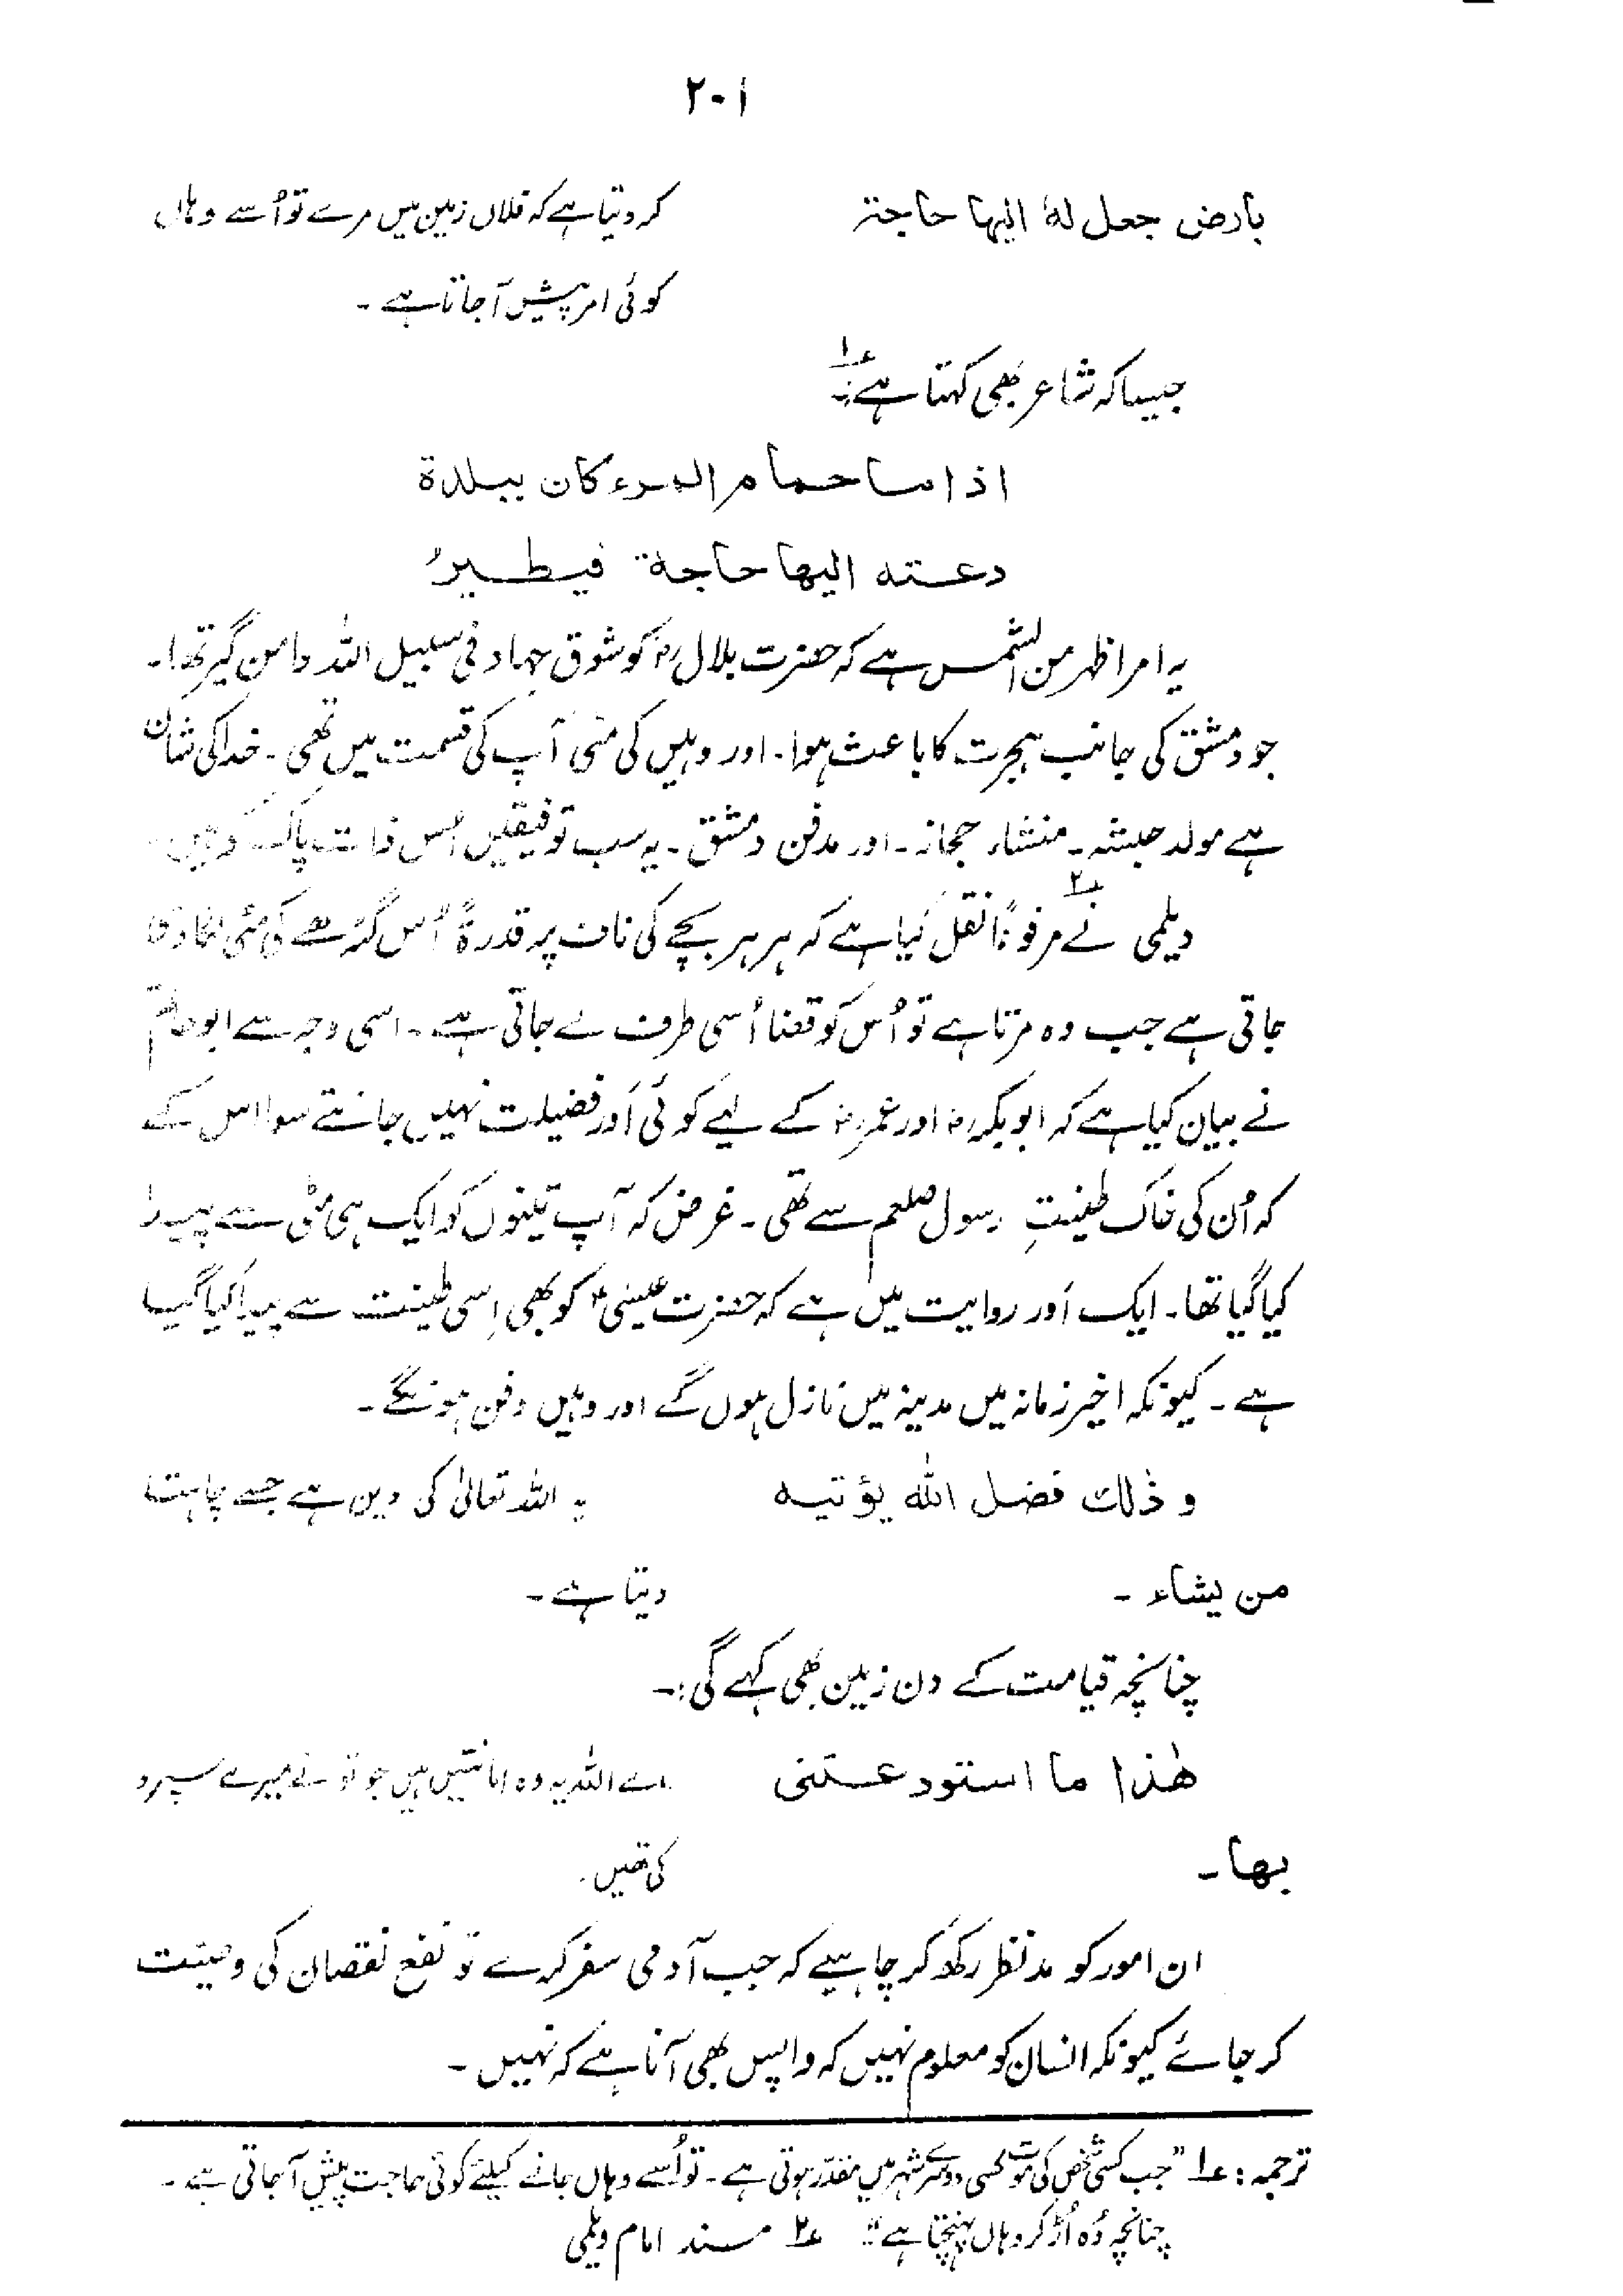 ۲۰۱
بارض جعل لہٗ الیہا حاجتہ کر دیتا ہے کہ فلاں زمین میں مرے تو اُسے وہاں
کوئی امر پیش آجاتا ہے ۔
جیسا کہ شاعر بھی کہتا ہے :۔ ؏۱
اذا ما حمام المرء كان ببلدة
دعته اليها حاجة فيطيرُ
یہ امر اظہر من الشمس ہے کہ حضرت بلال رضؓ کو شوق جہاد فی سبیل اللہ دامن گیر تھا۔
جو دمشق کی جانب ہجرت کا باعث ہوا۔ اور وہیں کی مٹی آپ کی قسمت میں تھی ۔ خدا کی شان
ہے مولد حبشہ۔ منشاء حجاز۔ اور مدفن دمشق۔ یہ سب توفیقیں اُس ذات پاک کو ہیں۔
دیلمی ؏۲ نے مرفوعًا نقل کیا ہے کہ ہر ہر بچے کی ناف پر قدرۃً اُس گڑھے کی مٹی لگا دی
جاتی ہے جب وہ مرتا ہے تو اُس کو قضا اُسی طرف لے جاتی ہے ۔ اسی وجہ سے ابو عاصم
نے بیان کیا ہے کہ ابوبکر رضؓ اور عمر رضؓ کے لیے کوئی اَور فضیلت نہیں جانتے سوا اس کے
کہ اُن کی خاک طینتِ رسول صلعم سے تھی ۔ غرض کہ آپ تینوں کو ایک ہی مٹی سے پیدا
کیا گیا تھا۔ ایک اَور روایت میں ہے کہ حضرت عیسٰیؑ کو بھی اِسی طینت سے پیدا کیا گیا
ہے ۔ کیونکہ اخیر زمانہ میں مدینہ میں نازل ہوں گے اور وہیں دفن ہونگے ۔
و ذٰلك فضل اللّٰه يؤتيه یہ اللہ تعالیٰ کی دین ہے جسے چاہتا
من يشاء ۔ دیتا ہے ۔
چنانچہ قیامت کے دن زمین بھی کہے گی :۔
هٰذا ما استودعتنى اے اللہ یہ وہ امانتیں ہیں جو تو نے میرے سپرد
بها ۔ کی تھیں ۔
ان امور کو مدنظر رکھ کر چاہیے کہ جب آدمی سفر کرے تو نفع نقصان کی وصیّت
کر جائے کیونکہ انسان کو معلوم نہیں کہ واپس بھی آنا ہے کہ نہیں ۔
ترجمہ : ؏۱ "جب کسی شخص کی موت کسی دوسرے شہر میں مقدّر ہوتی ہے ۔ تو اُسے وہاں جانے کیلئے کوئی حاجت پیش آجاتی ہے ۔
چنانچہ وُہ اُڑ کر وہاں پہنچتا ہے" ؏۲ مسند امام دیلمی